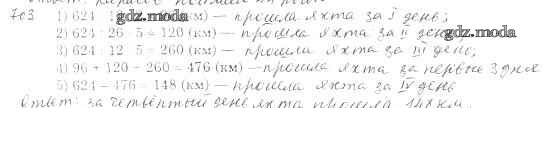 703 1) 624 (км) – прошла яхта за I день;
2) 624 : 26 · 5 = 120 (км) – прошла яхта за II день
3) 624 : 12 · 5 = 260 (км) – прошла яхта за III день;
4) 96 + 120 + 260 = 476 (км) – прошла яхта за первые 3 дня
5) 624 – 476 = 148 (км) – прошла яхта за IV день
Ответ: за четвёртый день яхта прошла 148 км.
gdz.moda
gdz.moda
gdz.moda
gdz.moda